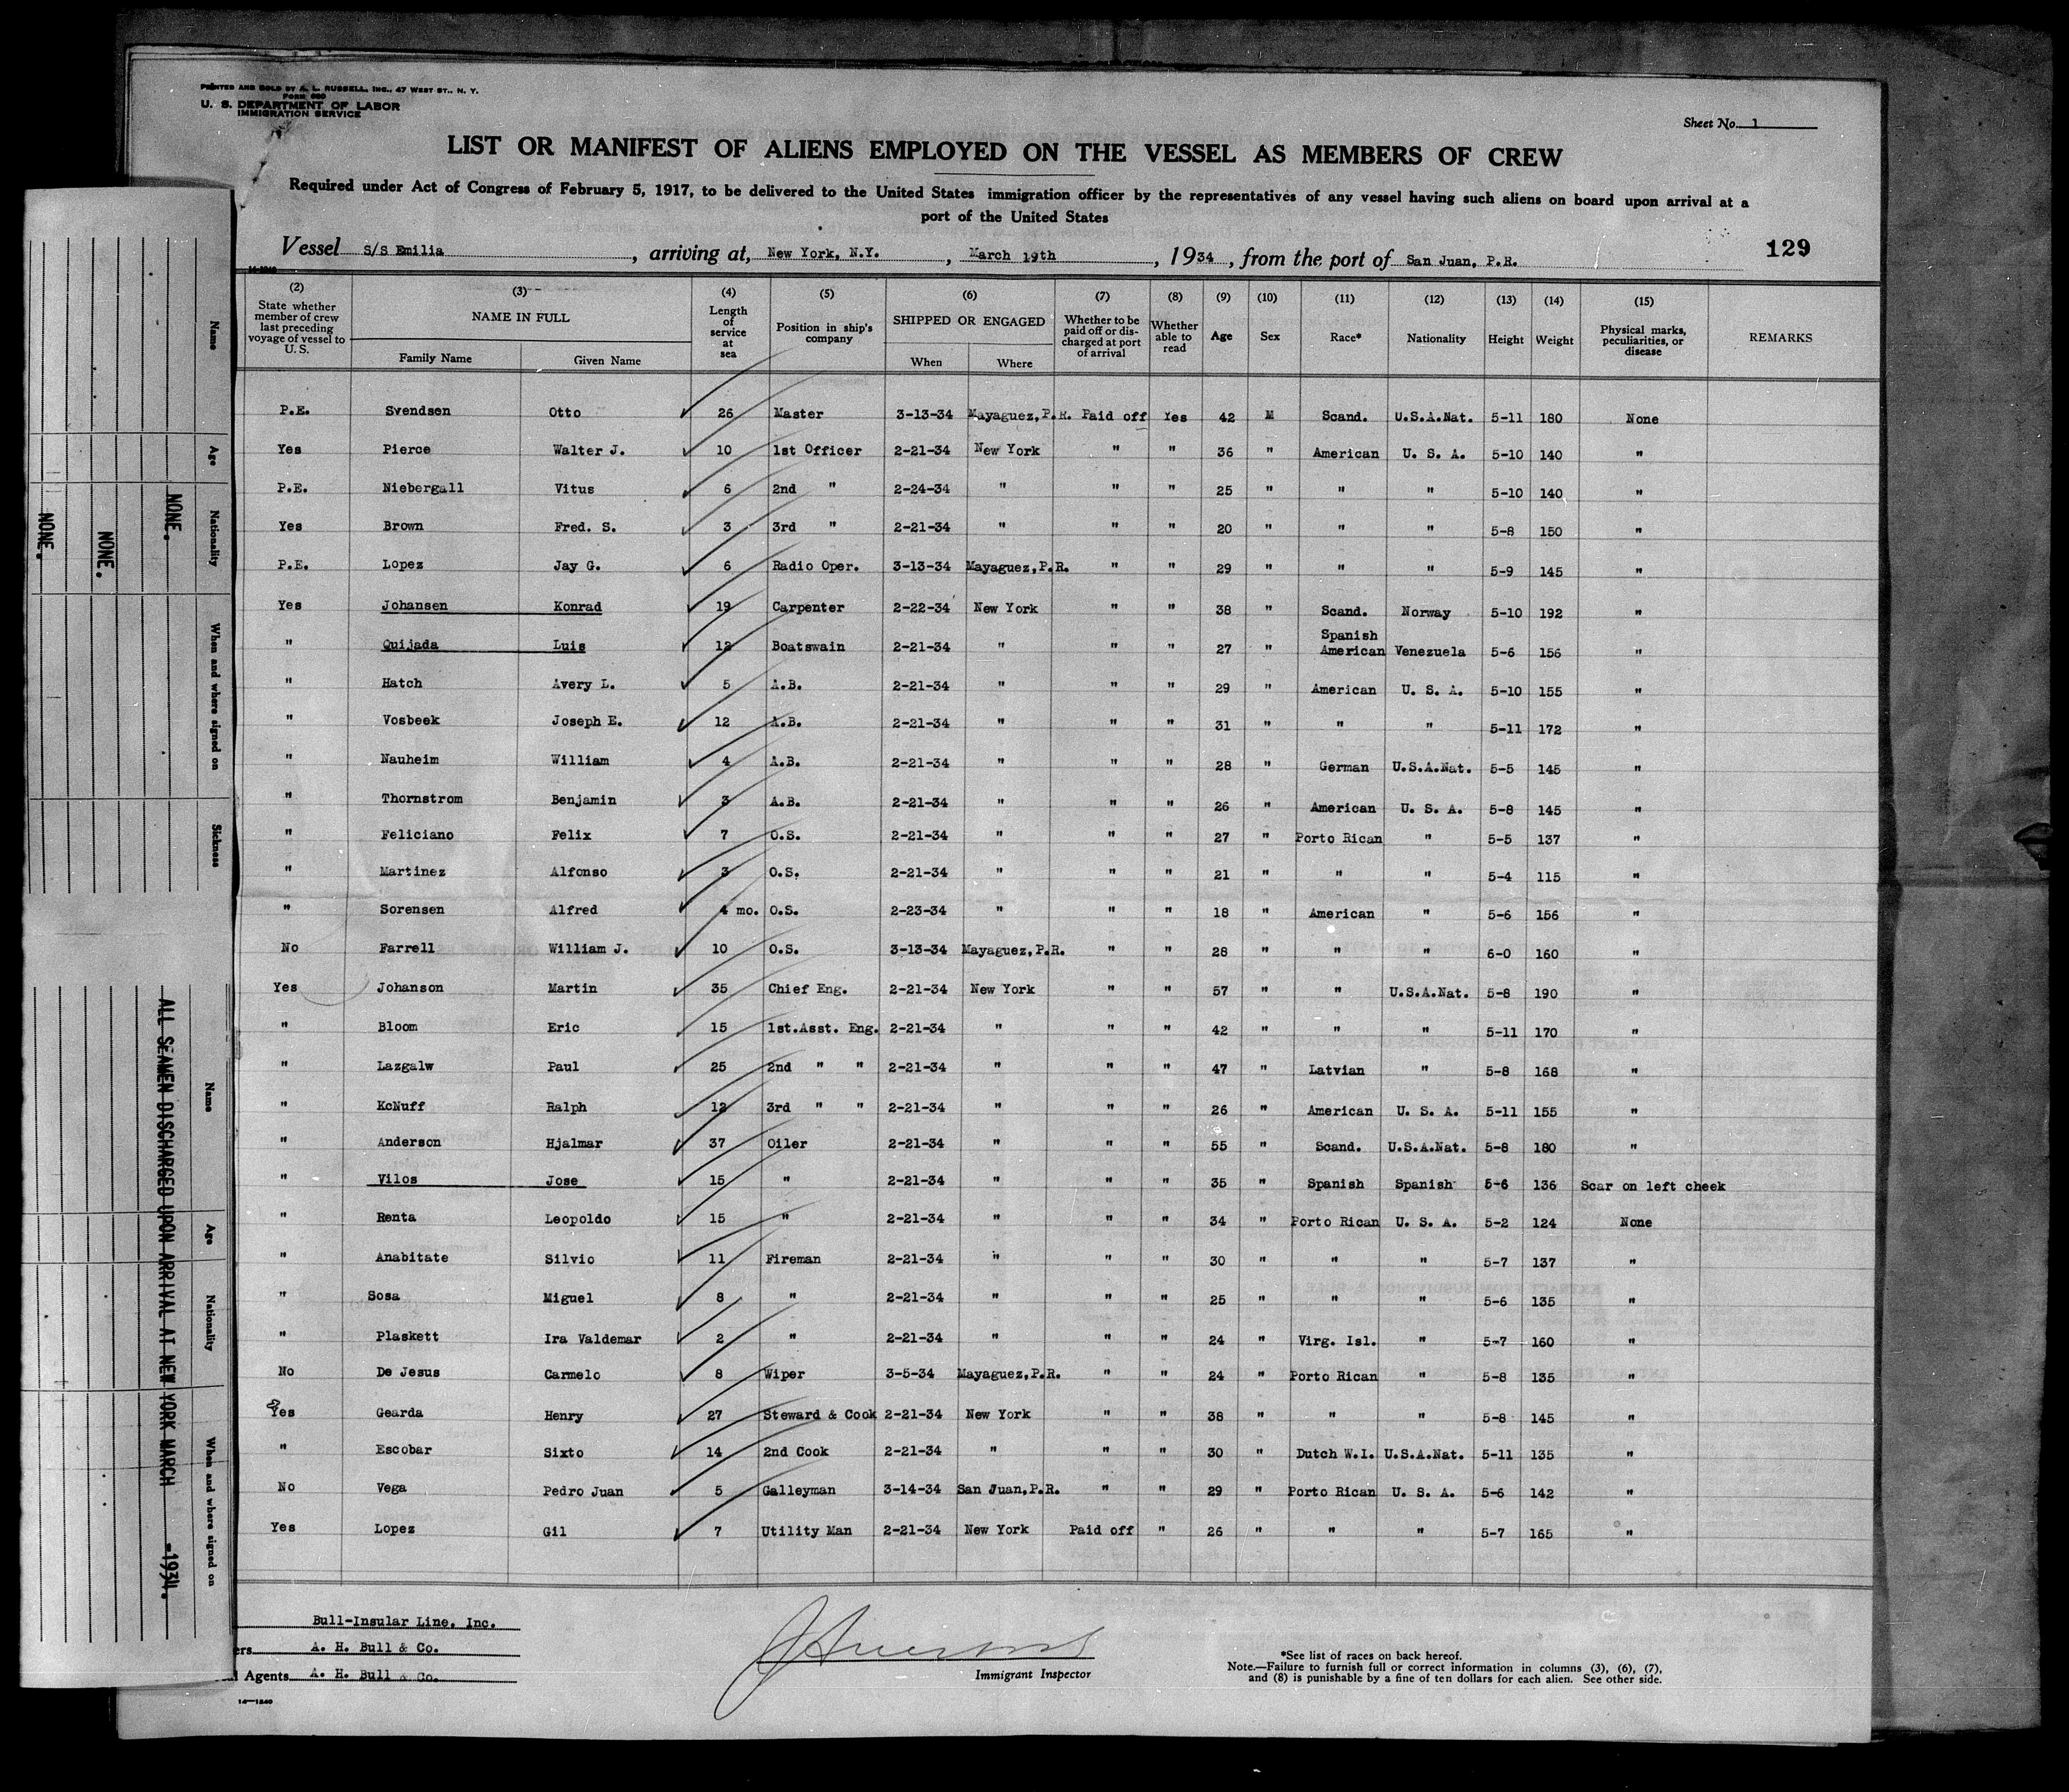 PRINTED AND SOLD BY A. L. RUSSELL, INC., 47 WEST ST., N. Y.
FORM 680
U. S. DEPARTMENT OF LABOR
IMMIGRATION SERVICE
Sheet No. 1
LIST OR MANIFEST OF ALIENS EMPLOYED ON THE VESSEL AS MEMBERS OF CREW
Required under Act of Congress of February 5, 1917, to be delivered to the United States immigration officer by the representatives of any vessel having such aliens on board upon arrival at a
port of the United States
Vessel S/S Emilia, arriving at, New York, N.Y., March 19th, 1934, from the port of San Juan, P.R.
129
14-1240
(2) State whether member of crew last preceding voyage of vessel to U. S. (3) NAME IN FULL Family Name Given Name (4) Length of service at sea (5) Position in ship's company (6) SHIPPED OR ENGAGED When Where (7) Whether to be paid off or discharged at port of arrival (8) Whether able to read (9) Age (10) Sex (11) Race* (12) Nationality (13) Height (14) Weight (15) Physical marks, peculiarities, or disease REMARKS
P.E. Svendsen Otto 26 Master 3-13-34 Mayaguez,P.R. Paid off Yes 42 M Scand. U.S.A.Nat. 5-11 180 None
Yes Pierce Walter J. 10 1st Officer 2-21-34 New York " " 36 " American U. S. A. 5-10 140 "
P.E. Niebergall Vitus 6 2nd " 2-24-34 " " " 25 " " " 5-10 140 "
Yes Brown Fred. S. 3 3rd " 2-21-34 " " " 20 " " " 5-8 150 "
P.E. Lopez Jay G. 6 Radio Oper. 3-13-34 Mayaguez,P.R. " " 29 " " " 5-9 145 "
Yes Johansen Konrad 19 Carpenter 2-22-34 New York " " 38 " Scand. Norway 5-10 192 "
" Quijada Luis 12 Boatswain 2-21-34 " " " 27 " Spanish American Venezuela 5-6 156 "
" Hatch Avery L. 5 A.B. 2-21-34 " " " 29 " American U. S. A. 5-10 155 "
" Vosbeek Joseph E. 12 A.B. 2-21-34 " " " 31 " " " 5-11 172 "
" Nauheim William 4 A.B. 2-21-34 " " " 28 " German U.S.A.Nat. 5-5 145 "
" Thornstrom Benjamin 3 A.B. 2-21-34 " " " 26 " American U. S. A. 5-8 145 "
" Feliciano Felix 7 O.S. 2-21-34 " " " 27 " Porto Rican " 5-5 137 "
" Martinez Alfonso 3 O.S. 2-21-34 " " " 21 " " " 5-4 115 "
" Sorensen Alfred 4 mo. O.S. 2-23-34 " " " 18 " American " 5-6 156 "
No Farrell William J. 10 O.S. 3-13-34 Mayaguez,P.R. " " 28 " " " 6-0 160 "
Yes Johanson Martin 35 Chief Eng. 2-21-34 New York " " 57 " " U.S.A.Nat. 5-8 190 "
" Bloom Eric 15 1st.Asst. Eng. 2-21-34 " " " 42 " " " 5-11 170 "
" Lazgalw Paul 25 2nd " " 2-21-34 " " " 47 " Latvian " 5-8 168 "
" KcNuff Ralph 12 3rd " " 2-21-34 " " " 26 " American U. S. A. 5-11 155 "
" Anderson Hjalmar 37 Oiler 2-21-34 " " " 55 " Scand. U.S.A.Nat. 5-8 180 "
" Vilos Jose 15 " 2-21-34 " " " 35 " Spanish Spanish 5-6 136 Scar on left cheek
" Renta Leopoldo 15 " 2-21-34 " " " 34 " Porto Rican U. S. A. 5-2 124 None
" Anabitate Silvio 11 Fireman 2-21-34 " " " 30 " " " 5-7 137 "
" Sosa Miguel 8 " 2-21-34 " " " 25 " " " 5-6 135 "
" Plaskett Ira Valdemar 2 " 2-21-34 " " " 24 " Virg. Isl. " 5-7 160 "
No De Jesus Carmelo 8 Wiper 3-5-34 Mayaguez,P.R. " " 24 " Porto Rican " 5-8 135 "
Yes Gearda Henry 27 Steward & Cook 2-21-34 New York " " 38 " " " 5-8 145 "
" Escobar Sixto 14 2nd Cook 2-21-34 " " " 30 " Dutch W.I. U.S.A.Nat. 5-11 135 "
No Vega Pedro Juan 5 Galleyman 3-14-34 San Juan,P.R. " " 29 " Porto Rican U. S. A. 5-6 142 "
Yes Lopez Gil 7 Utility Man 2-21-34 New York Paid off " 26 " " " 5-7 165 "
Bull-Insular Line, Inc.
ers A. H. Bull & Co.
Agents A. H. Bull & Co.
14-1240
Immigrant Inspector
*See list of races on back hereof.
Note.—Failure to furnish full or correct information in columns (3), (6), (7),
and (8) is punishable by a fine of ten dollars for each alien. See other side.
Name Age Nationality When and where signed on Sickness
NONE.
NONE.
NONE.
Name Age Nationality When and where signed on
ALL SEAMEN DISCHARGED UPON ARRIVAL AT NEW YORK MARCH -1934.